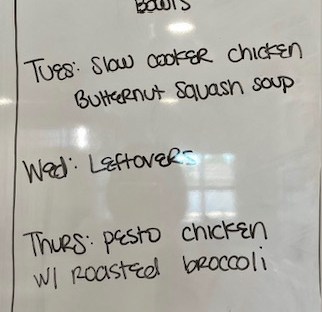 Bowls
Tues: Slow cooker chicken
Butternut squash soup
Wed: Leftovers
Thurs: pesto chicken
w/ roasted broccoli